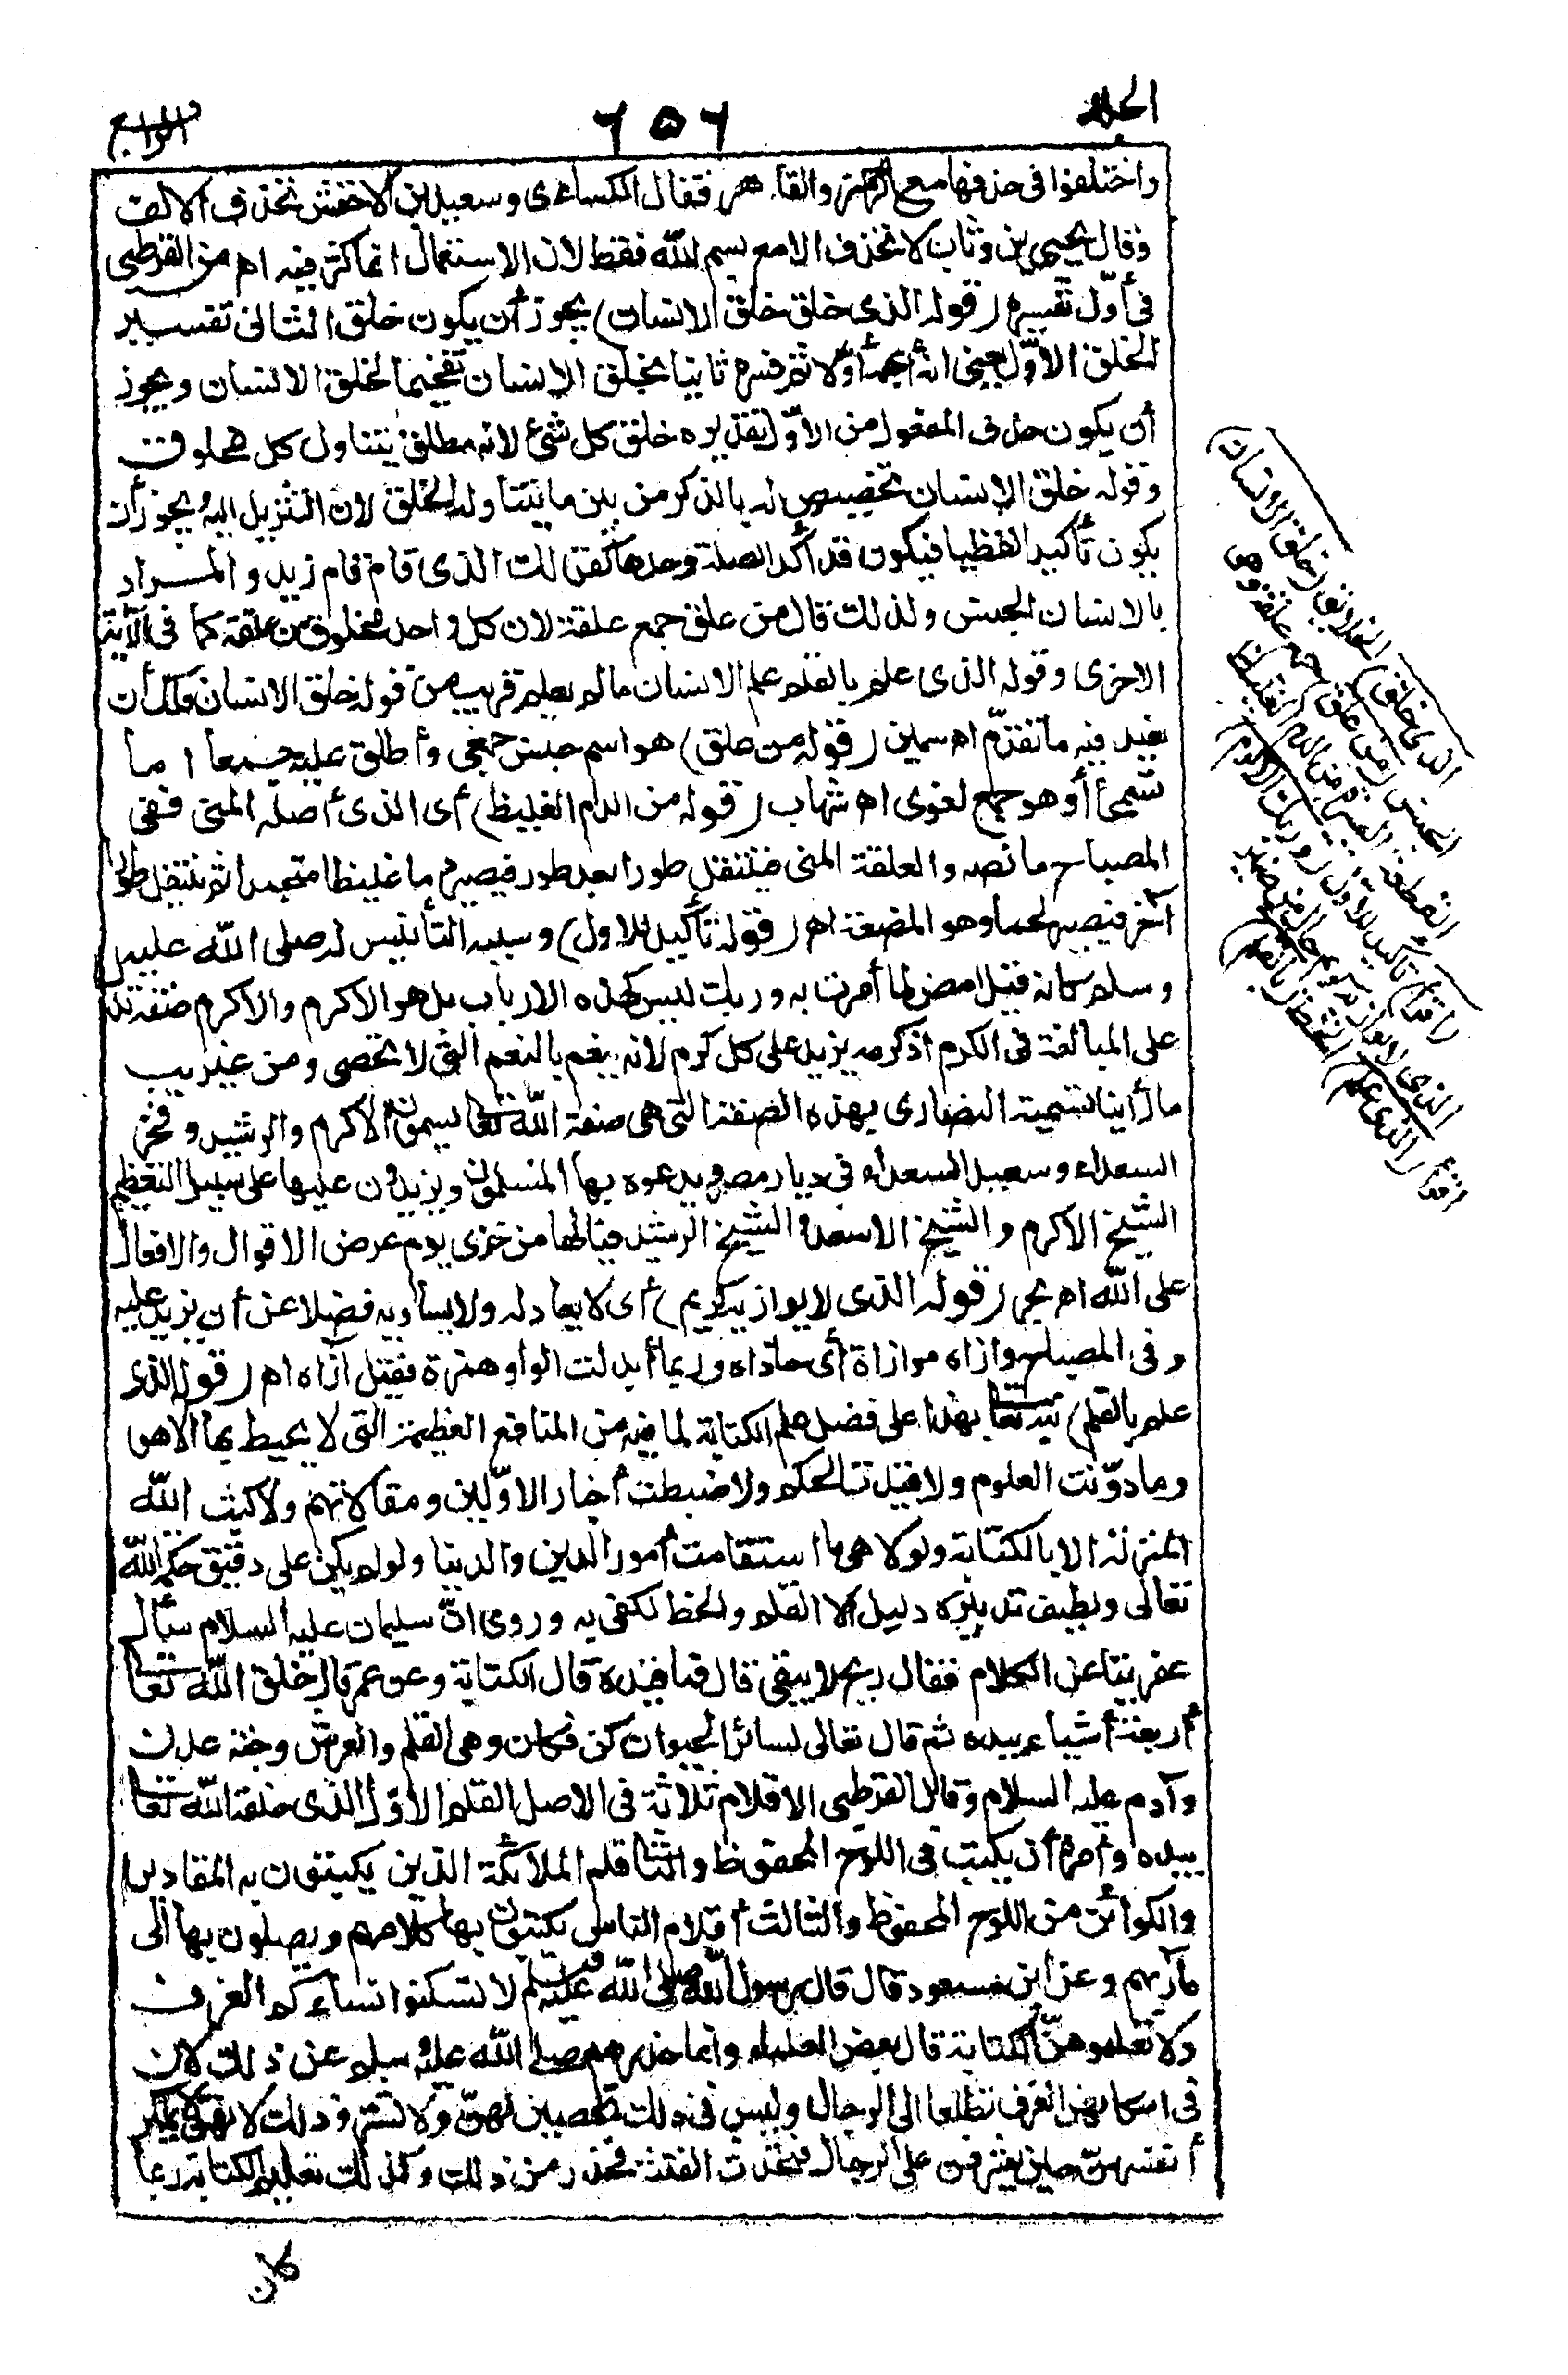 الجلد ٦٥٦ الرابع
واختلفوا فى حذفها مع الرحمن والقاهر فقال الكسائى وسعيد بن الاخفش تحذف الالف
وقال يحيى بن وثاب لا تحذف الا مع بسم الله فقط لان الاستعمال انما كثر فيه اه من القرطبى
فى أول تفسيره (قوله الذى خلق خلق الانسان) يجوز أن يكون خلق الثانى تفسير
الخلق الأول يعنى انه أبهمه أولا ثم فسره ثانيا بخلق الانسان تفخيما لخلق الانسان ويجوز
أن يكون حذف المفعول من الأول تقديره خلق كل شئ لانه مطلق يتناول كل مخلوق
وقوله خلق الانسان تخصيص له بالذكر من بين ما يتناوله الخلق لان التنزيل اليه ويجوز أن
يكون تأكيدا لفظيا فيكون قد أكد الصلة وحدها كقولك الذى قام قام زيد والمراد
بالانسان الجنس ولذلك قال من علق جمع علقة لان كل واحد مخلوق من علقة كما فى الآية
الاخرى وقوله الذى علم بالقلم علم الانسان ما لم يعلم قريب من قوله خلق الانسان فلك أن
تعيد فيه ما تقدم اه سمين (قوله من علق) هو اسم جنس جمعى وأطلق عليه جمعا اما
تسمحا أو هو جمع لغوى اه شهاب (قوله من الدم الغليظ) أى الذى أصله المنى ففى
المصباح ما نصه والعلقة المنى ينتقل طورا بعد طور فيصير دما غليظا متجمدا ثم ينتقل طورا
آخر فيصير لحما وهو المضغة اه (قوله تأكيد للاول) وسببه التأنيس له صلى الله عليه
وسلم كانه قيل امض لما أمرت به وربك ليس كهذه الارباب بل هو الاكرم والاكرم صفة تدل
على المبالغة فى الكرم اذ كرمه يزيد على كل كرم لانه ينعم بالنعم التى لا تحصى ومن غريب
ما رأينا تسمية النصارى بهذه الصفة التى هى صفة الله تعالى يسمون الاكرم والرشيد وفخر
السعداء وسعيد السعداء فى ديار مصر ويدعوه بها المسلمون ويزيدون عليها على سبيل التعظيم
الشيخ الاكرم والشيخ الاسعد والشيخ الرشيد فيالها من خزى يوم عرض الاقوال والافعال
على الله اه بحر (قوله الذى لا يوازيه كريم) أى لا يعادله ولا يساويه فضلا عن أن يزيد عليه
وفى المصباح وازاه موازاة أى حاذاه وربما أبدلت الواو همزة فقيل آزاه اه (قوله الذى
علم بالقلم) نبه تعالى بهذا على فضل علم الكتابة لما فيه من المنافع العظيمة التى لا يحيط بها الا هو
وما دونت العلوم ولا قيدت الحكم ولا ضبطت أخبار الاولين ومقالاتهم ولا كتب الله
المنزلة الا بالكتابة ولولا هى ما استقامت أمور الدين والدنيا ولو لم يكن على دقيق حكم الله
تعالى ولطيف تدبيره دليل الا القلم والخط لكفى به وروى ان سليمان عليه السلام سأل
عفريتا عن الكلام فقال ريح لا يبقى قال فما قيده قال الكتابة وعن عمر قال خلق الله تعالى
أربعة أشياء بيده ثم قال تعالى لسائر الحيوان كن فكان وهى القلم والعرش وجنة عدن
وآدم عليه السلام وقال القرطبى الاقلام ثلاثة فى الاصل القلم الاول الذى خلقه الله تعالى
بيده وأمره أن يكتب فى اللوح المحفوظ والثانى قلم الملائكة الذين يكتبون به المقادير
والكوائن من اللوح المحفوظ والثالث أقلام الناس يكتبون بها كلامهم ويصلون بها الى
مآربهم وعن ابن مسعود قال قال رسول الله صلى الله عليه وسلم لا تسكنوا نساءكم الغرف
ولا تعلموهن الكتابة قال بعض العلماء وانما حذرهم صلى الله عليه وسلم عن ذلك لان
فى اسكانهن الغرف تطلعا الى الرجال وليس فى ذلك تحصين لهن ولا تستر وذلك لانهن لا يملكن
أنفسهن حين يشرفن على الرجال فتحدث الفتنة فحذر من ذلك وكذلك تعليم الكتابة ربما
كان
الذى خلق) الخلائق (خلق الانسان)
الجنس (من علق) جمع علقة وهى
القطعة اليسيرة من الدم الغليظ
(اقرأ) تأكيد للاول (وربك الاكرم)
الذى لا يوازيه كريم حال من ضمير
اقرأ (الذى علم) الخط (بالقلم)